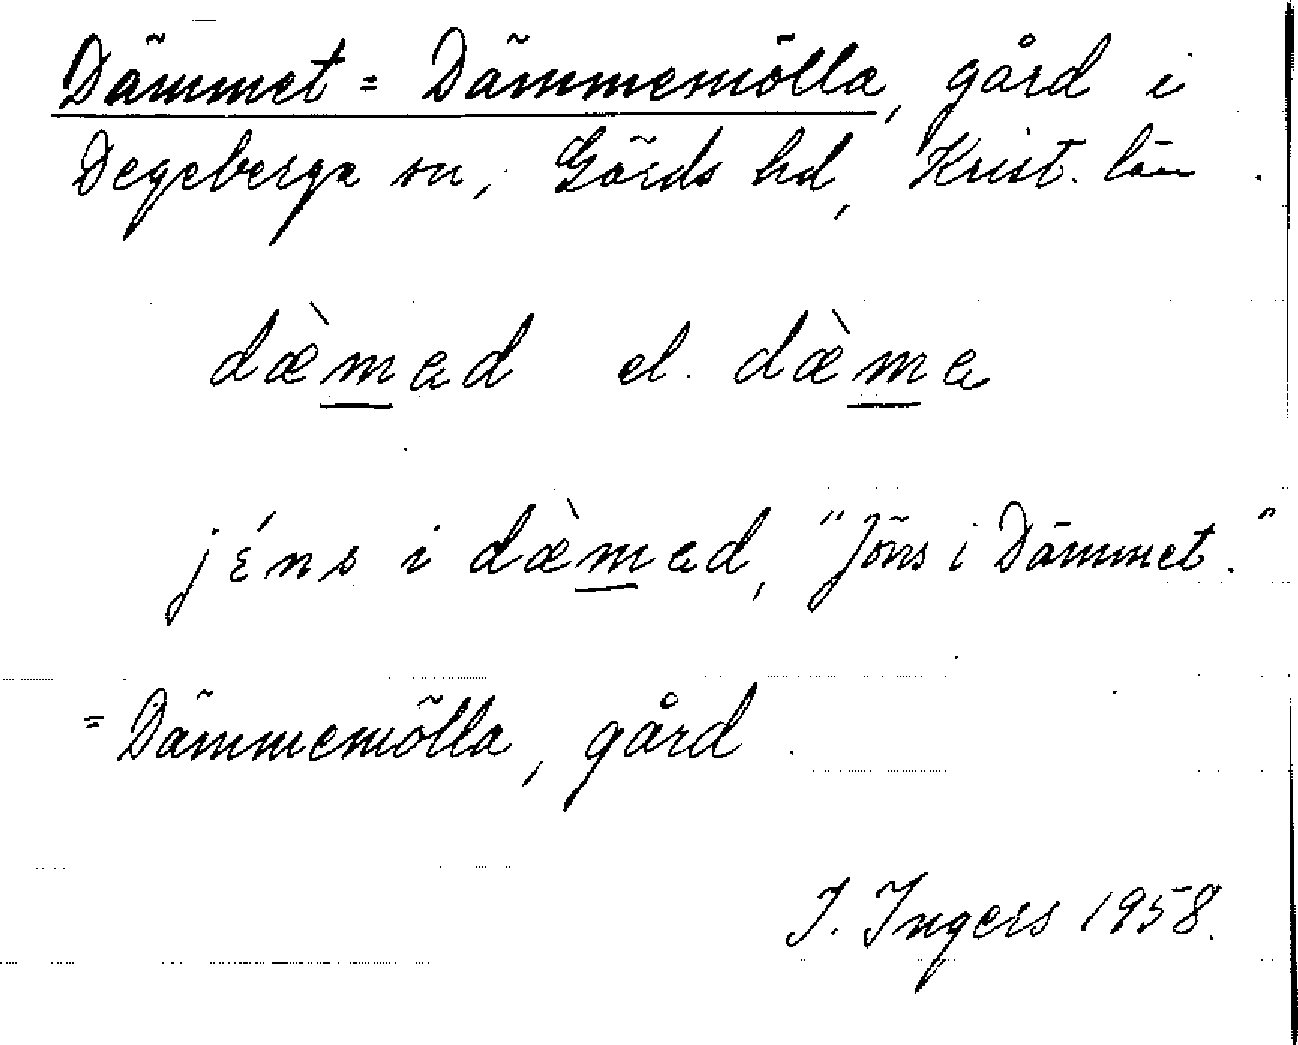 Dämmet = Dämmemölla, gård i
Degeberga sn, Gärds hd, Krist. län.
dæ̀məd el. dæ̀mə
jéns i dæ̀məd, "Jöns i Dämmet."
= Dämmemölla, gård.
I. Ingers 1958.